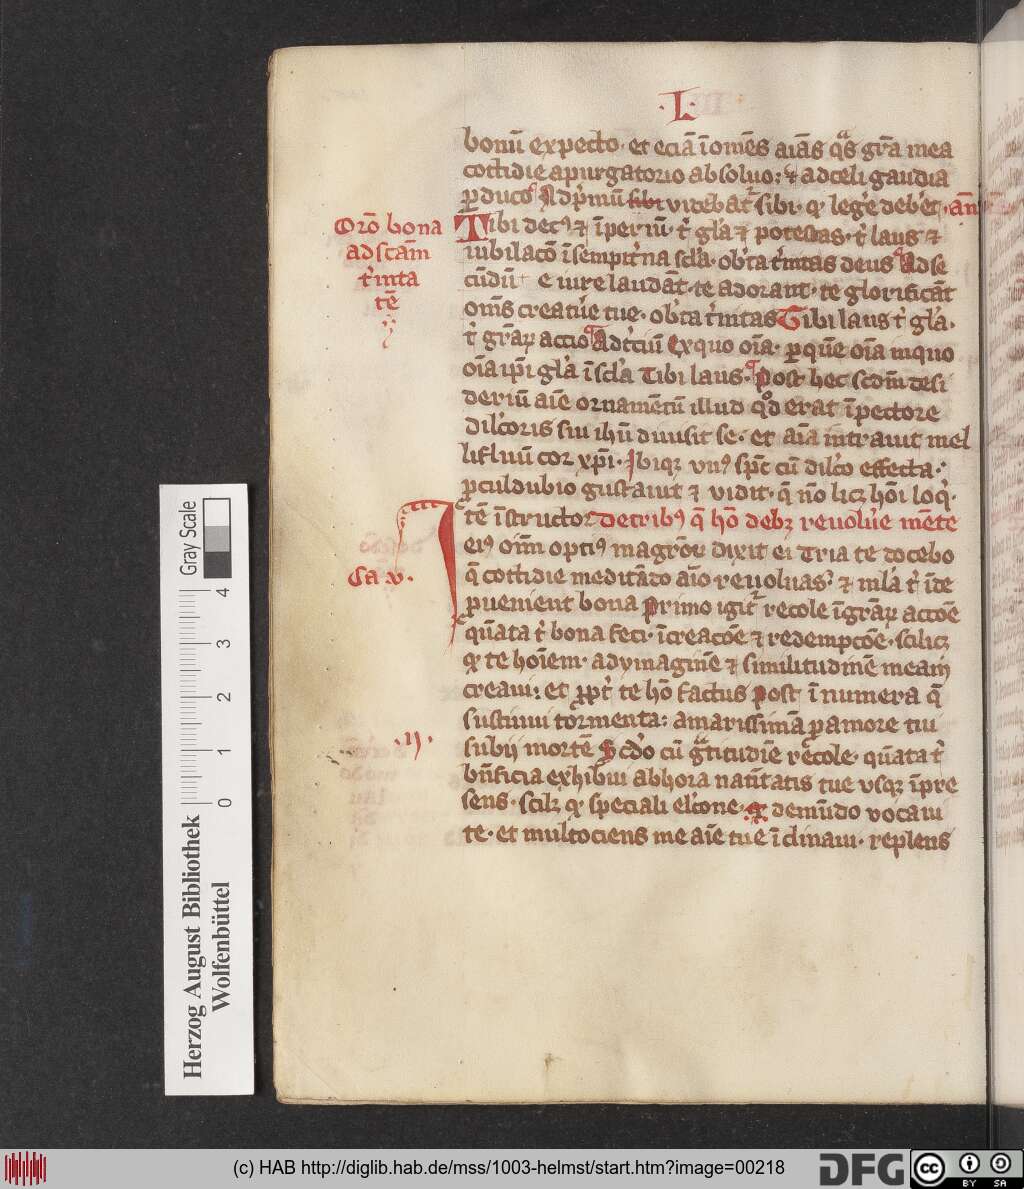 ·L·
bonū expecto· et eciā ī om̄es aīas q̄s gr̄a mea
cottidie a purgatorio absoluo: et ad celi gaudia
ꝑduco Ad p̄mū sibi videbat᷑ sibi· ꝙ leg̓e deb̓et· an̄
Orō bona
ad scām
t̓nita
tē
Tibi dec⁹ ⁊ īperiū· t̓ gl̓a ⁊ potestas· t̓ laus ⁊
iubilacō ī sempit̓na scl̓a· ob̓ta t̓nitas deus Ad se
cūdū te iure laudāt· te adorant· te glorificāt
om̄s creatu̓e tue· ob̓ta t̓nitas Tibi laus t̓ gl̓a·
t̓ gr̄aꝝ accio Ad t̓ciū Ex quo oīa· ꝑ quē oīa in quo
oīa ip̄i gl̓a ī scl̓a Tibi laus· Post hec scd̄m desi
deriū aīe ornamētū illud qd̓ erat ī pectore
dil̓coris sui ih̄u diuisit se· et aīa intrauit mel
lifluū cor xp̄i· Ibiqꝫ vn⁹ sp̄c cū dil̓co effecta·
ꝓculdubio gustauit ⁊ vidit· q̄ nō licꝫ hōi loq̓·
te īstructor De trib⁹ q̄ hō debꝫ reuolu̓e mēte
Ca v·
Iei⁹ om̄ opti⁹ magr̄oꝝ dixit ei Tria te docebo
q̄ cottidie meditādo aīo reuoluas· ⁊ ml̓a t̓ īde
ꝓuenient bona Primo igit᷑ recole ī gr̄aꝝ accōe
quāta t̓ bona feci· ī creacōe ⁊ redempcōe· scilicꝫ
ꝙ te hoīem· ad ymaginē ⁊ similitudinē meam
creaui: et ꝓpt̓ te hō factus Post īnumera q̄
sustinui tormenta: amarissimā p amore tui
·ij·
subij mortē Scd̓o cū gͣtitudīe recole· quāta t̓
bn̄ficia exhibui ab hora natiītatis tue vsqꝫ ī pre
sens· scilꝫ ꝙ speciali el̓cōne· ꝙ de mūdo vocaui
te· et multociens me aīe tue īclinaui· replens
Gray Scale
0 1 2 3 4
Herzog August Bibliothek
Wolfenbüttel
(c) HAB http://diglib.hab.de/mss/1003-helmst/start.htm?image=00218
DFG
cc BY SA